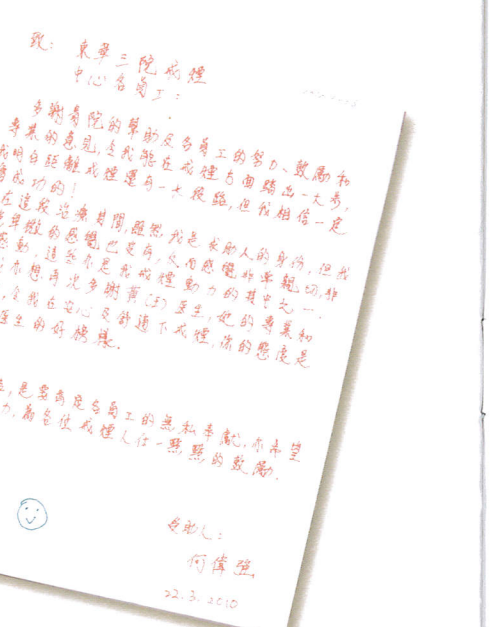 致：東華三院戒煙
中心各員工：
多謝貴院的幫助及各員工的努力、鼓勵和
專業的意見，令我能在戒煙方面踏出一大步，
我明白距離戒煙還有一大段路，但我相信一定
會成功的！
在這段治療其間，雖然我是求助人的身份，但我
卑微的感覺也沒有，反而感覺非常親切，非
感動，這些亦是我戒煙動力的其中之一。
亦想再次多謝黃(王)醫生，她的專業和
令我在安心及舒適下戒煙，你的態度是
醫生的好榜樣。
是要肯定各員工的無私奉獻，亦希望
力，為各位戒煙人仕一點點的鼓勵。
受助人：
何偉強
22.3.2010